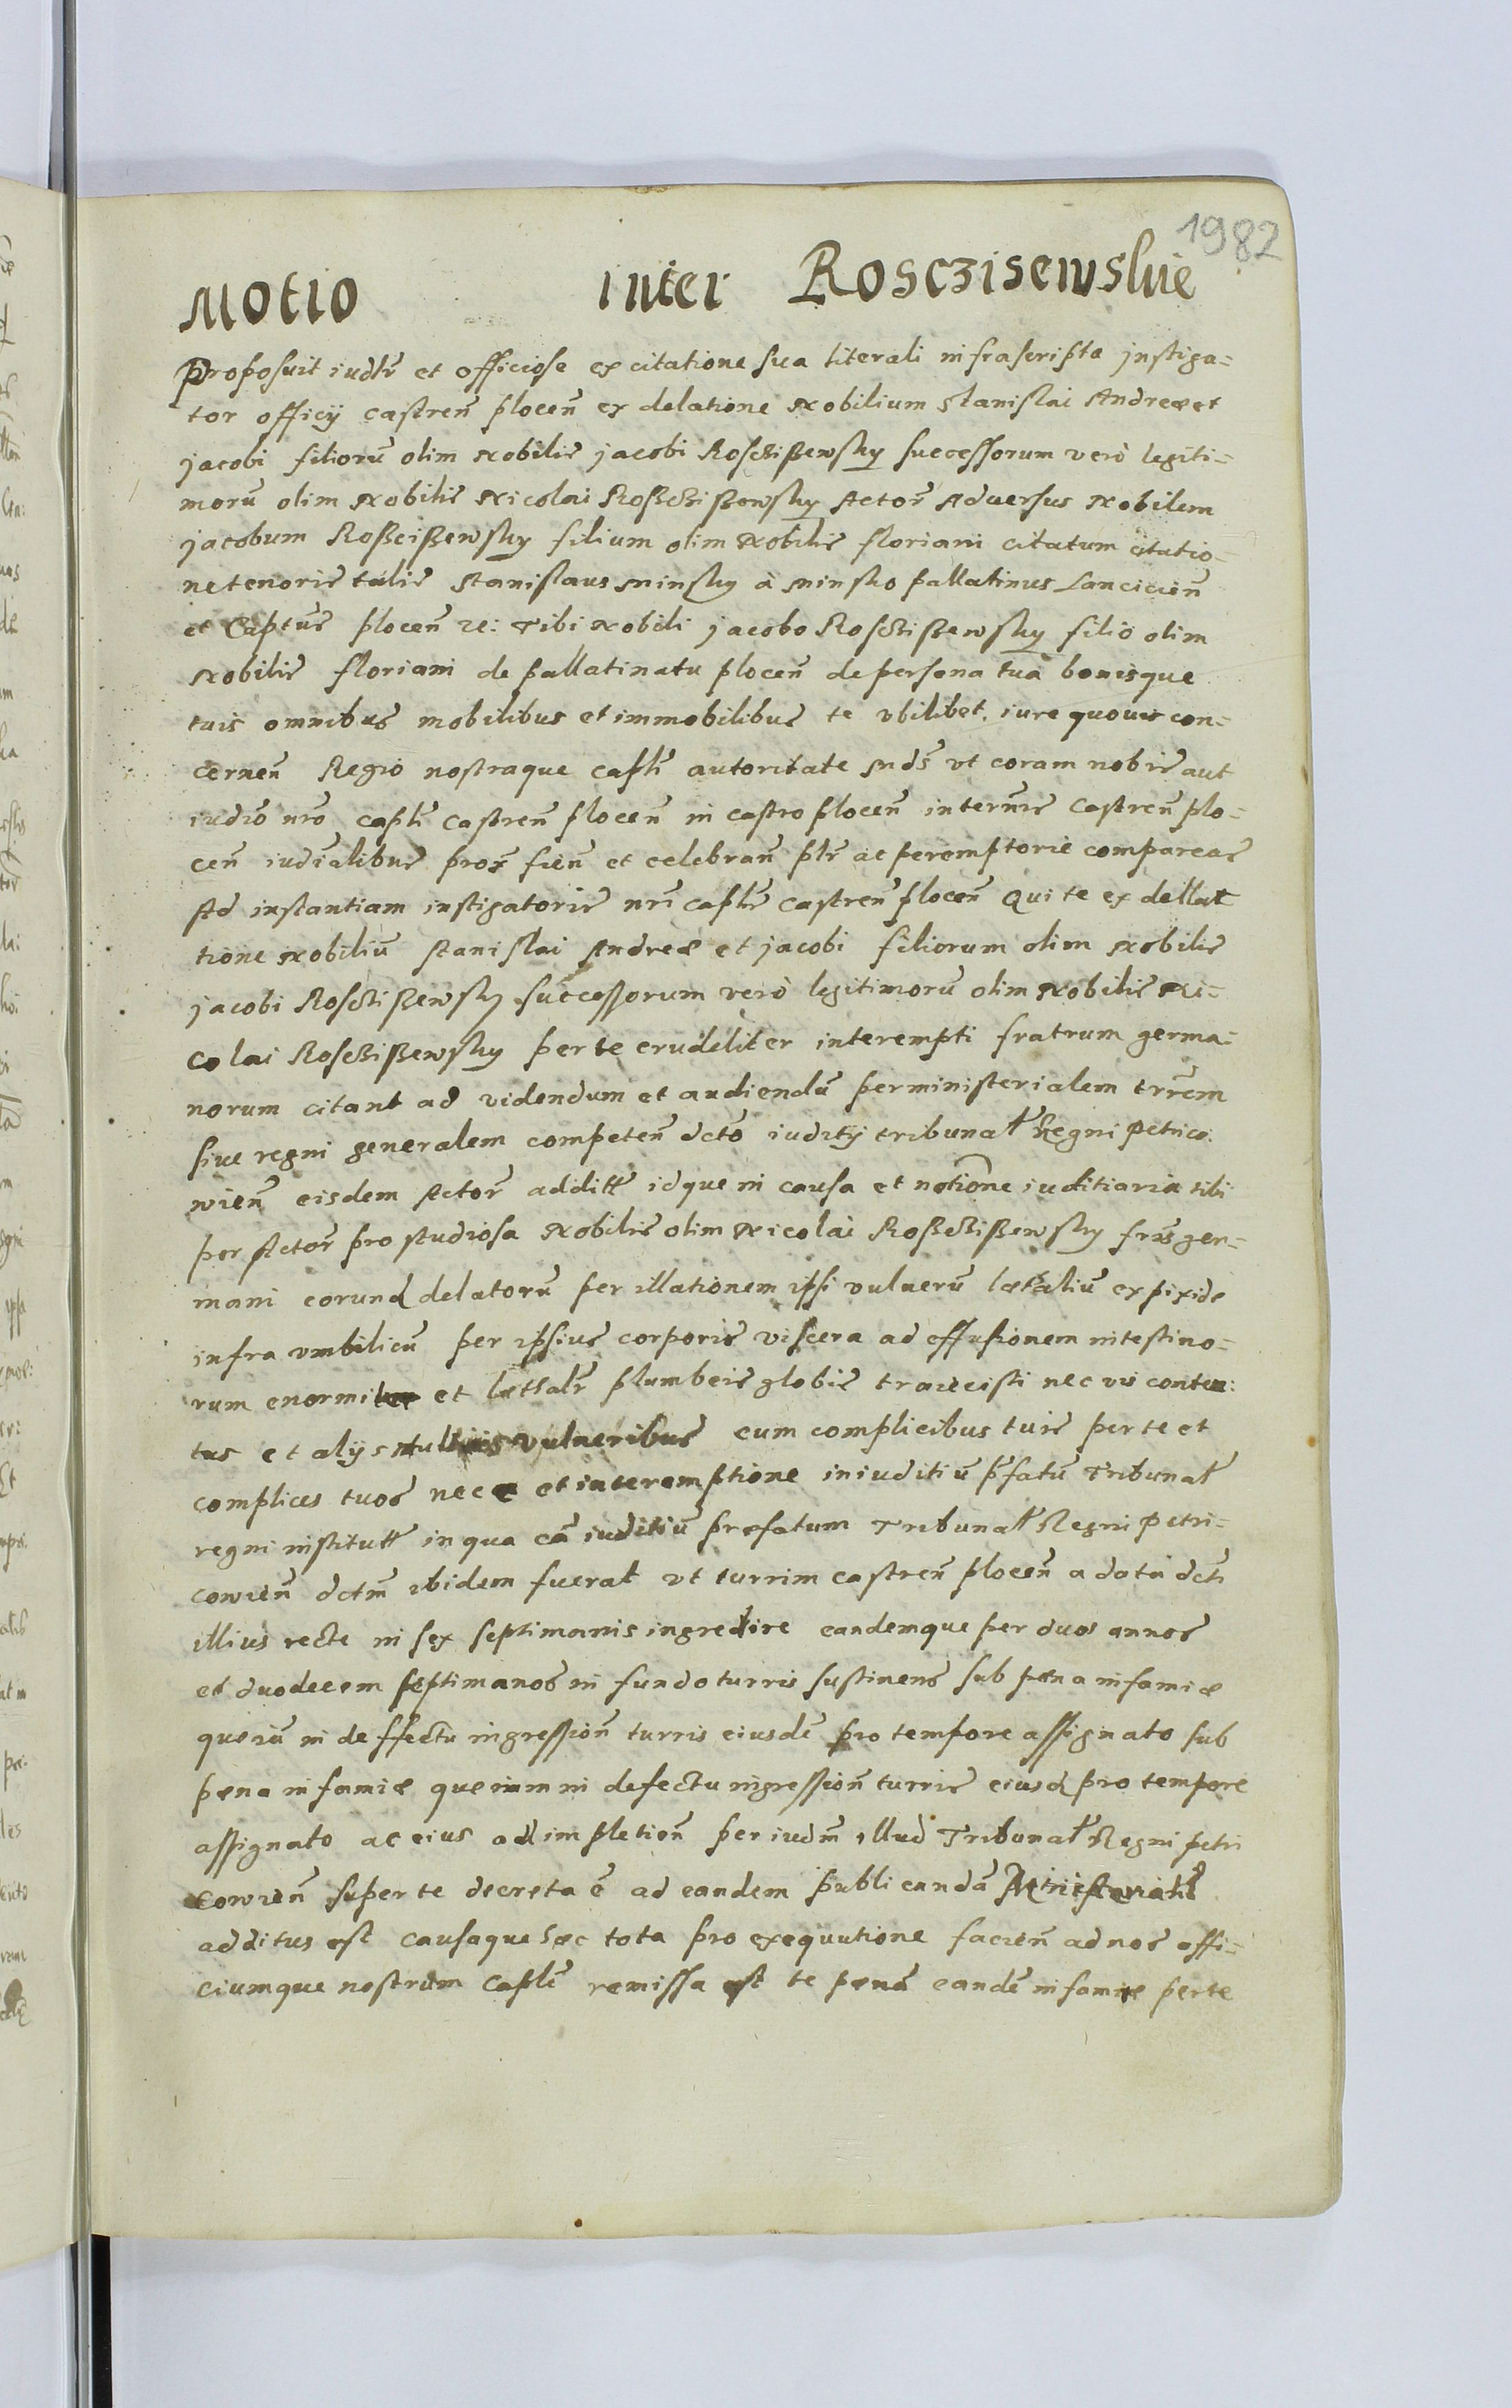 1982
Motio inter Rosczisewskie
Proposuit iudlr et officiose ex citatione sua literali infrascripta Jnstiga-
tor officij castren plocen ex delatione Nobilium Stanislai Andreæ et
Jacobi filioru olim Nobilis Jacobi Roscżißewsky successorum verò legiti-
moru olim Nobilis Nicolai Roßcżißewsky Actor Adversus Nobilem
Jacobum Roßcißewsky filium olim Nobilis floriani citatum citatio-
ne tenoris talis Stanislaus Minsky à Minsko pallatinus Lancicien
et Captus plocen re: Tibi Nobili Jacobo Roscżißewsky filio olim
Nobilis floriani de pallatinatu plocen de persona tua bonisque
tuis omnibus mobilibus et immobilibus te vbilibet iure quovis con-
cernen Regio nostraque capli autoritate Mds vt coram nobis aut
iudio nro capli castren plocen in castro plocen in ternis Castren plo-
cen iudialibus prox fien et celebran plr ac peremptorie compareas
Ad instantiam instigatoris nri caplis castren plocen Qui te ex dellat
tione Nobiliu Stanislai Andreæ et Jacobi filiorum olim Nobilis
Jacobi Roscżißewsky successorum verò legitimoru olim Nobilis Ni-
colai Roscżißewsky per te crudeliter interempti fratrum germa-
norum citant ad videndum et audiendu per ministerialem trrem
sive regni generalem competen dcto iuditij tribunal Regni Petrico:
wien eisdem Actor additt idque in causa et notione iuditiaria tibi
per Actor pro studiosa Nobilis olim Nicolai Roßcżißewsky fris ger-
mani eorund delatoru per illationem ipsi vulneru lætaliu ex pixide
infra vmbilicu per ipsius corporis viscera ad effusionem intestino-
rum enormiter et læthalr plumbeis globis traiecisti nec vis conten:
tus et alijs multis vulneribus cum complicibus tuis per te et
complices tuos nece et interemptione in iuditiu pfatu Tribunal
regni institutt in qua ca iuditiu præfatum Tribunal Regni Petri-
cowien dctm ibidem fuerat vt turrim castren plocen a data dcti
illius recte in sex septimanis ingredire eandemque per duos annos
et duodecem septimanos in fundo turris sustinens sub pæna infamiæ
queiu in deffectu ingression turris eiusde pro tempore assignato sub
pena infamiæ queium in defectu ingression turris eiusd pro tempore
assignato ac eius adimpletion per iudm illud Tribunal Regni petri
cowien super te decreta e ad eandem publicanda Ministerialis
additus est causaque hæc tota pro exequutione facien ad nos offi-
ciumque nostrum caple remissa est te pena eande infamiæ per te